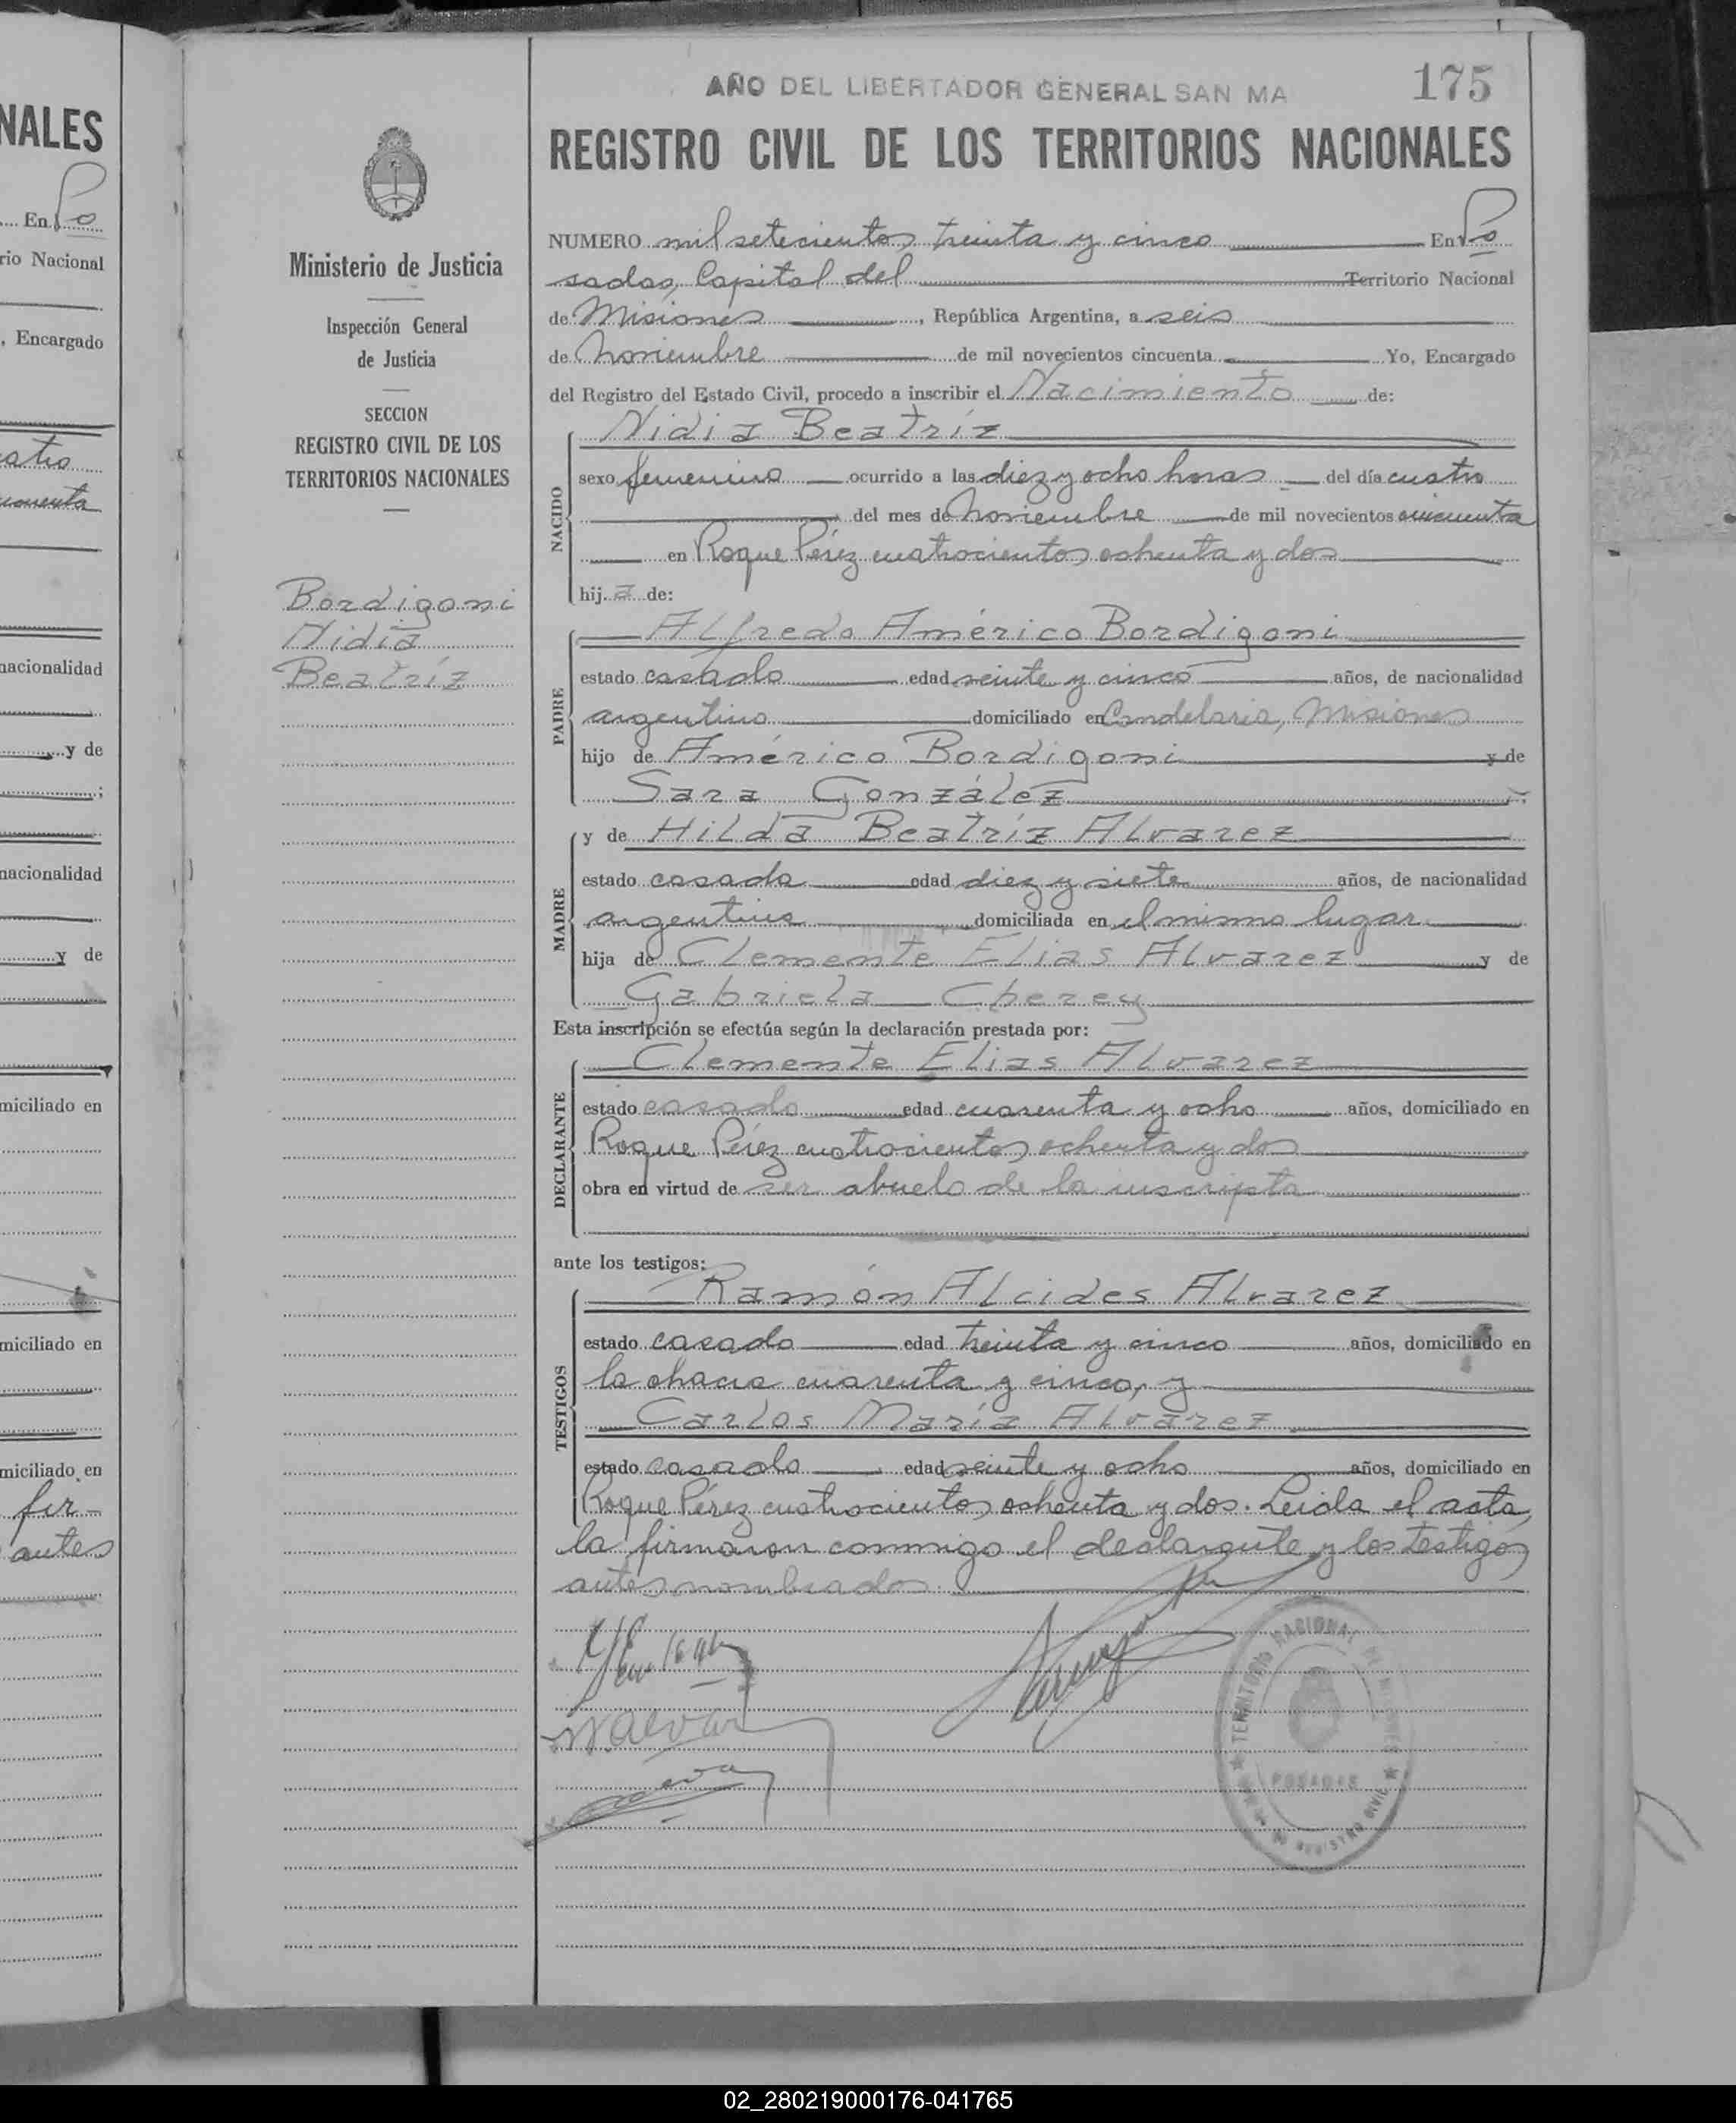 NALES
En Po
rio Nacional
, Encargado
atro
cuenta
nacionalidad
y de
nacionalidad
y de
miciliado en
miciliado en
miciliado en
fir-
antes
Ministerio de Justicia
Inspección General
de Justicia
SECCION
REGISTRO CIVIL DE LOS
TERRITORIOS NACIONALES
Bordigoni
Nidia
Beatríz
AÑO DEL LIBERTADOR GENERAL SAN MA
175
REGISTRO CIVIL DE LOS TERRITORIOS NACIONALES
NUMERO mil setecientos treinta y cinco En Po
sadas, Capital del Territorio Nacional
de Misiones, República Argentina, a seis
de Noviembre de mil novecientos cincuenta Yo, Encargado
del Registro del Estado Civil, procedo a inscribir el Nacimiento de:
NACIDO
Nidia Beatríz
sexo femenino ocurrido a las diez y ocho horas del día cuatro
del mes de Noviembre de mil novecientos cincuenta
en Roque Pérez cuatrocientos ochenta y dos
hija de:
PADRE
Alfredo Américo Bordigoni
estado casado edad veinte y cinco años, de nacionalidad
argentino domiciliado en Candelaria, Misiones
hijo de Américo Bordigoni y de
Sara González ;
MADRE
y de Hilda Beatríz Alvarez
estado casada edad diez y siete años, de nacionalidad
argentina domiciliada en el mismo lugar
hija de Clemente Elias Alvarez y de
Gabriela Cherey
Esta inscripción se efectúa según la declaración prestada por:
DECLARANTE
Clemente Elias Alvarez
estado casado edad cuarenta y ocho años, domiciliado en
Roque Pérez cuatrocientos ochenta y dos
obra en virtud de ser abuelo de la inscripta
ante los testigos:
TESTIGOS
Ramón Alcides Alvarez
estado casado edad treinta y cinco años, domiciliado en
la chacra cuarenta y cinco, y
Carlos María Alvarez
estado casado edad veinte y ocho años, domiciliado en
Roque Pérez cuatrocientos ochenta y dos. Leída el acta,
la firmaron conmigo el declarante y los testigos
antes nombrados
TERRITORIO NACIONAL DE MISIONES
POSADAS
REGISTRO CIVIL
02_280219000176-041765